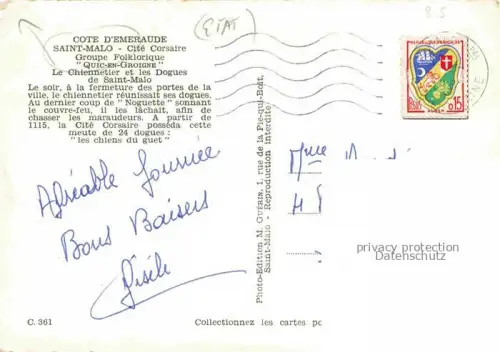 (ETAT)
8.5
COTE D'EMERAUDE
SAINT-MALO - Cité Corsaire
Groupe Folklorique
"QUIC-EN-GROIGNE"
Le Chiennetier et les Dogues
de Saint-Malo
Le soir, à la fermeture des portes de la
ville, le chiennetier réunissait ses dogues.
Au dernier coup de "Noguette" sonnant
le couvre-feu, il les lâchait, afin de
chasser les maraudeurs. A partir de
1115, la Cité Corsaire posséda cette
meute de 24 dogues :
"les chiens du guet"
Agréable Journée
Bons Baisers
Gisèle
C. 361
Collectionnez les cartes po
Photo-Edition M. GUÉRIN, 1, rue de la Pie-qui-Boit,
Saint-Malo - Reproduction interdite
0,15
Mme
privacy protection
Datenschutz